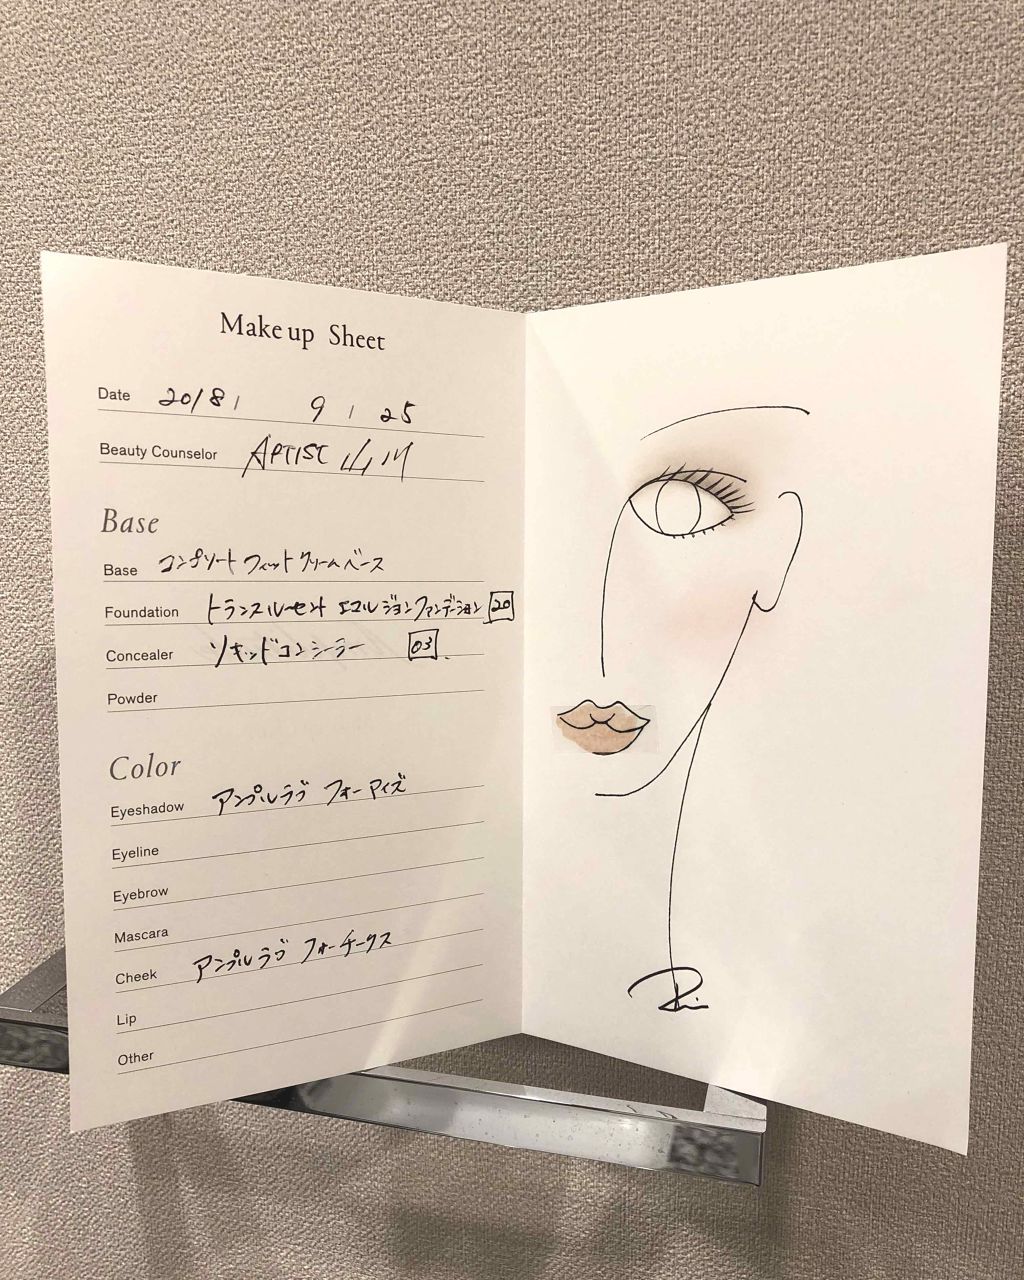 Make up Sheet
Date 2018 / 9 / 25
Beauty Counselor ARTIST 山川
Base
Base コンプリート フィット クリームベース
Foundation トランスルーセント エマルジョンファンデーション 20
Concealer リキッドコンシーラー 03
Powder
Color
Eyeshadow アンプルラブ フォー アイズ
Eyeline
Eyebrow
Mascara
Cheek アンプルラブ フォーチークス
Lip
Other